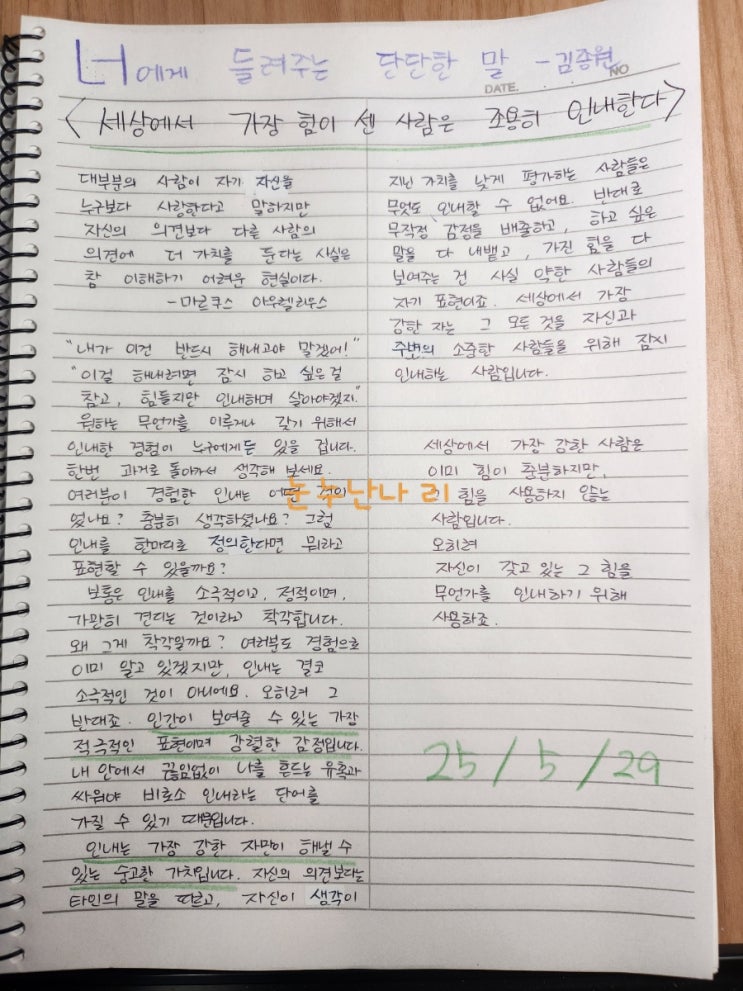 너에게 들려주는 단단한 말 - 김종원
DATE. NO
<세상에서 가장 힘이 센 사람은 조용히 인내한다>
대부분의 사람이 자기 자신을
누구보다 사랑한다고 말하지만
자신의 의견보다 다른 사람의
의견에 더 가치를 둔다는 사실은
참 이해하기 어려운 현실이다.
- 마르쿠스 아우렐리우스
"내가 이건 반드시 해내고야 말겠어!"
"이걸 해내려면 잠시 하고 싶은 걸
참고, 힘들지만 인내하며 살아야겠지."
원하는 무언가를 이루거나 갖기 위해서
인내한 경험이 누구에게든 있을 겁니다.
한번 과거로 돌아가서 생각해 보세요.
여러분이 경험한 인내는 어떤 것이
었나요? 충분히 생각하셨나요? 그럼
인내를 한마디로 정의한다면 뭐라고
표현할 수 있을까요?
보통은 인내를 소극적이고, 정적이며,
가만히 견디는 것이라고 착각합니다.
왜 그게 착각일까요? 여러분도 경험으로
이미 알고 있겠지만, 인내는 결코
소극적인 것이 아니에요. 오히려 그
반대죠. 인간이 보여줄 수 있는 가장
적극적인 표현이며 강렬한 감정입니다.
내 안에서 끊임없이 나를 흔드는 유혹과
싸워야 비로소 인내라는 단어를
가질 수 있기 때문입니다.
인내는 가장 강한 자만이 해낼 수
있는 숭고한 가치입니다. 자신의 의견보다는
타인의 말을 따르고, 자신이 생각이
지닌 가치를 낮게 평가하는 사람들은
무엇도 인내할 수 없어요. 반대로
무작정 감정을 배출하고, 하고 싶은
말을 다 내뱉고, 가진 힘을 다
보여주는 건 사실 약한 사람들의
자기 표현이죠. 세상에서 가장
강한 자는 그 모든 것을 자신과
주변의 소중한 사람들을 위해 잠시
인내하는 사람입니다.
세상에서 가장 강한 사람은
이미 힘이 충분하지만,
힘을 사용하지 않는
사람입니다.
오히려
자신이 갖고 있는 그 힘을
무언가를 인내하기 위해
사용하죠.
25/5/29
눈누난나 리